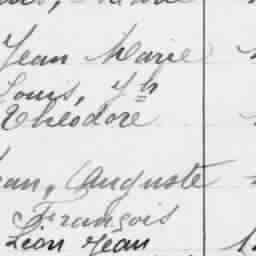 Jean Marie
Louis, Jh
Théodore
Jean, Auguste
François
Léon Jean